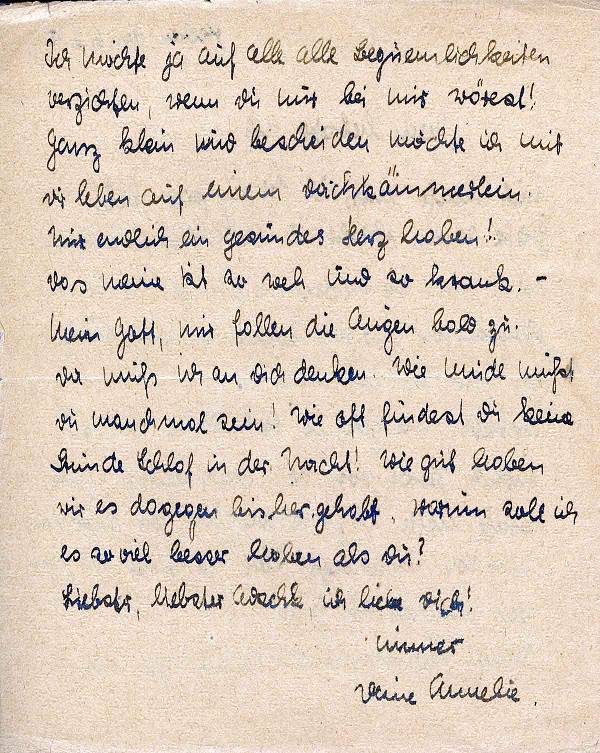 Ich möchte ja auf alle alle Bequemlichkeiten
verzichten, wenn du nur bei mir wärest!
Ganz klein und bescheiden möchte ich mit
dir leben auf einem Dachkämmerlein.
Nur endlich ein gesundes Herz haben!
Das meine ist so weh und so krank. –
Mein Gott, mir fallen die Augen bald zu.
Da muß ich an dich denken. Wie müde mußt
du manchmal sein! Wie oft findest du keine
Stunde Schlaf in der Nacht! Wie gut haben
wir es dagegen bisher gehabt. Warum soll ich
es so viel besser haben als du?
Liebster, liebster, ich liebe dich!
Immer
deine Annelie.